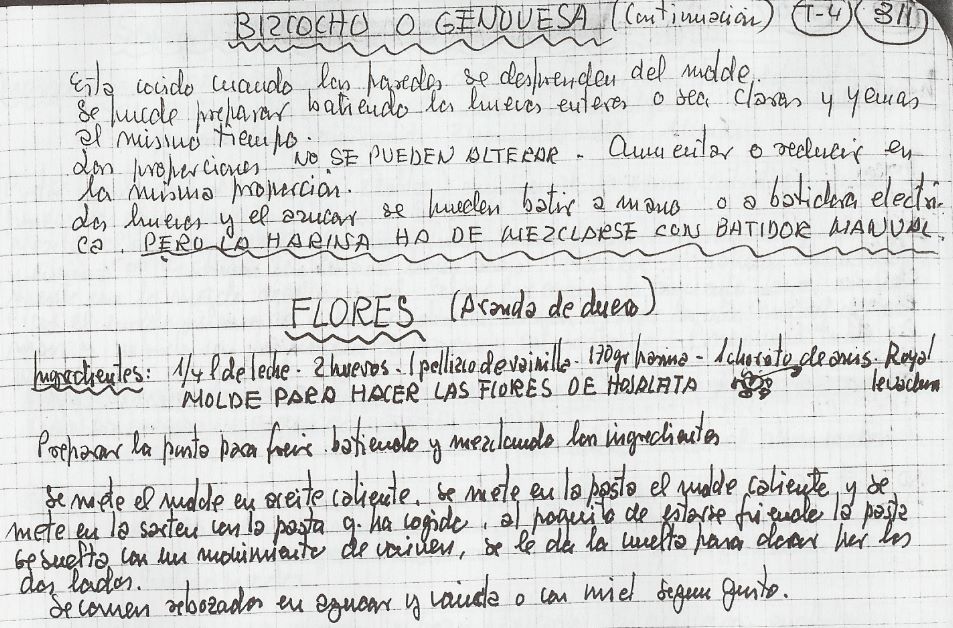 BIZCOCHO O GENOVESA (Continuación) T-4 311
Esta cocido cuando las paredes se desprenden del molde.
Se puede preparar batiendo los huevos enteros o sea claras y yemas
al mismo tiempo.
Las proporciones NO SE PUEDEN ALTERAR - Aumentar o reducir en
la misma proporción.
Los huevos y el azucar se pueden batir a mano o a batidora electri-
ca. PERO LA HARINA HA DE MEZCLARSE CON BATIDOR MANUAL.
FLORES (Aranda de duero)
Ingredientes: 1/4 l de leche - 2 huevos - 1 pellizco de vainilla - 170 gr harina - 1 chorrito de anis - Royal
MOLDE PARA HACER LAS FLORES DE HOJALATA levadura
Preparar la pasta para freir batiendo y mezclando los ingredientes
Se mete el molde en aceite caliente, se mete en la pasta el molde caliente, y se
mete en la sarten con la pasta q. ha cogido, al poquito de estarse friendo la pasta
se suelta con un movimiento de vaiven, se le da la vuelta para dorar por los
dos lados.
Se comen rebozadas en azucar y canela o con miel segun gusto.